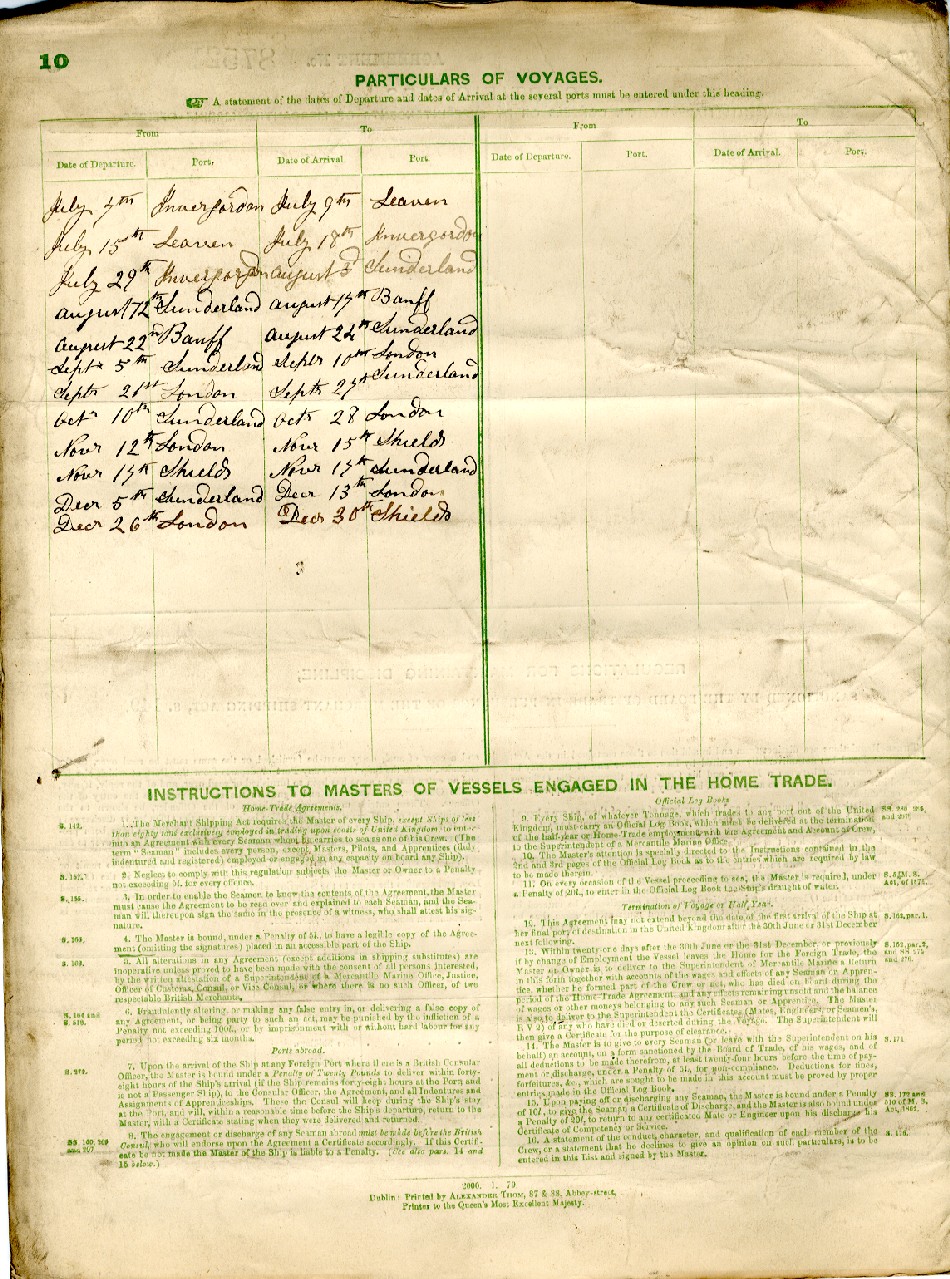 10
PARTICULARS OF VOYAGES.
A statement of the dates of Departure and dates of Arrival at the several ports must be entered under this heading.
From To From To
Date of Departure. Port. Date of Arrival. Port. Date of Departure. Port. Date of Arrival. Port.
July Invergordon July 9th Leaven
July 15th Leaven July 18th Invergordon
July 29th Invergordon august 5 Sunderland
august 12th Sunderland august 17th Banff
august 22nd Banff august Sunderland
Septr 5th Sunderland Septr 10th London
Septr 21st London Septr Sunderland
Octr 10th Sunderland Octr 28 London
Novr 12th London Novr 15th Shields
Novr 17th Shields Novr 17th Sunderland
Decr 5th Sunderland Decr 13th London
Decr 26th London Decr 30th Shields
INSTRUCTIONS TO MASTERS OF VESSELS ENGAGED IN THE HOME TRADE.
Home-Trade Agreements.
1. The Merchant Shipping Act requires the Master of every Ship, except Ships of less
than eighty tons exclusively employed in trading upon coasts of United Kingdom to enter
into an Agreement with every Seaman whom he carries to sea as one of his Crew. (The
term "Seaman" includes every person, except Masters, Pilots, and Apprentices duly
indentured and registered) employed or engaged in any capacity on board any Ship).
2. Neglect to comply with this regulation subjects the Master or Owner to a Penalty
not exceeding 5l. for every offence.
3. In order to enable the Seamen to know the contents of the Agreement, the Master
must cause the Agreement to be read over and explained to each Seaman, and the Sea-
man will thereupon sign the same in the presence of a witness, who shall attest his sig-
nature.
4. The Master is bound, under a Penalty of 5l. to have a legible copy of the Agree-
ment (omitting the signatures) placed in an accessible part of the Ship.
5. All alterations in any Agreement (except additions in shipping substitutes) are
inoperative unless proved to have been made with the consent of all persons interested,
by the written attestation of a Superintendent of a Mercantile Marine Office, Justice,
Officer of Customs, Consul, or Vice Consul, or where there is no such Officer, of two
respectable British Merchants.
6. Fraudulently altering or making any false entry in, or delivering a false copy of
any Agreement, or being party to such an act, may be punished by the infliction of a
Penalty not exceeding 100l., or by imprisonment with or without hard labour for any
period not exceeding six months.
Ports abroad.
7. Upon the arrival of the Ship at any Foreign Port where there is a British Consular
Officer, the Master is bound under a Penalty of Twenty Pounds to deliver within forty-
eight hours of the Ship's arrival (if the Ship remains forty-eight hours at the Port, and
is not a Passenger Ship), to the Consular Officer, the Agreement, and all Indentures and
Assignments of Apprenticeships. These the Consul will keep during the Ship's stay
at the Port, and will, within a reasonable time before the Ship's departure, return to the
Master, with a Certificate stating when they were delivered and returned.
8. The engagement or discharge of any Seaman abroad must be made before the British
Consul, who will endorse upon the Agreement a Certificate accordingly. If this Certif-
icate be not made the Master of the Ship is liable to a Penalty. (See also pars. 14 and
15 below.)
Official Log Books
9. Every Ship, of whatever Tonnage, which trades to any port out of the United
Kingdom, must carry an Official Log Book, which must be delivered at the termination
of the half-year or Home-Trade employment with this Agreement and Account of Crew,
to the Superintendent of a Mercantile Marine Office.
10. The Master's attention is specially directed to the Instructions contained in the
2nd and 3rd pages of the Official Log Book as to the entries which are required by law
to be made therein.
11. On every occasion of the Vessel proceeding to sea, the Master is required, under
a Penalty of 20l., to enter in the Official Log Book the Ship's draught of water.
Termination of Voyage or Half Year.
12. This Agreement may not extend beyond the date of the first arrival of the Ship at
her final port of destination in the United Kingdom after the 30th June or 31st December
next following.
13. Within twenty-one days after the 30th June or the 31st December, or previously
if by change of Employment the Vessel leaves the Home for the Foreign Trade, the
Master or Owner is to deliver to the Superintendent of Mercantile Marine a Return
in this form together with accounts of the wages and effects of any Seaman or Appren-
tice, whether he formed part of the Crew or not, who has died on board during the
period of the Home-Trade Agreement, and any effects remaining unsold and the balance
of wages or other moneys belonging to any such Seaman or Apprentice. The Master
is also to deliver to the Superintendent the Certificates (Mates, Engineers, or Seamen's,
R V 2) of any who have died or deserted during the Voyage. The Superintendent will
then give a Certificate for the purpose of clearance.
14. The Master is to give to every Seaman (or leave with the Superintendent on his
behalf) an account, on a form sanctioned by the Board of Trade, of his wages, and of
all deductions to be made therefrom, at least twenty-four hours before the time of pay-
ment or discharge, under a Penalty of 5l., for non-compliance. Deductions for fines,
forfeitures, &c., which are sought to be made in this account must be proved by proper
entries made in the Official Log Book.
15. Upon paying off or discharging any Seaman, the Master is bound under a Penalty
of 10l., to give the Seaman a Certificate of Discharge, and the Master is also bound under
a Penalty of 20l., to return to any certificated Mate or Engineer upon his discharge his
Certificate of Competency or Service.
16. A statement of the conduct, character, and qualification of each member of the
Crew, or a statement that he declines to give an opinion on such particulars, is to be
entered in this List and signed by the Master.
2000. 1. 79
Dublin: Printed by ALEXANDER THOM, 87 & 88, Abbey-street,
Printer to the Queen's Most Excellent Majesty.